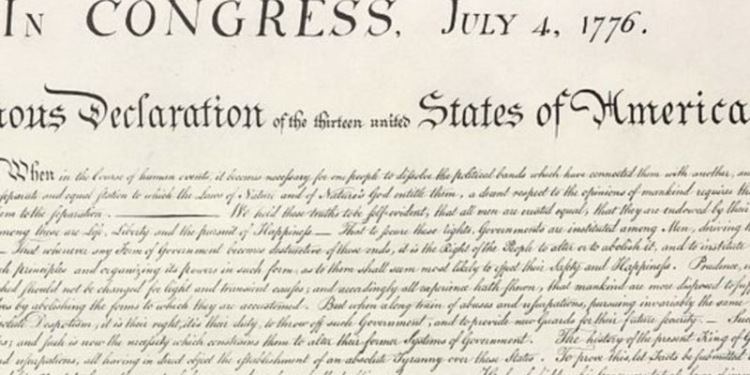 In CONGRESS, July 4, 1776.
mous Declaration of the thirteen united States of America
When in the Course of human events, it becomes necessary for one people to dissolve the political bands which have connected them with another, an
separate and equal station to which the Laws of Nature and of Nature's God entitle them, a decent respect to the opinions of mankind requires th
em to the separation. We hold these truths to be self-evident, that all men are created equal, that they are endowed by their
among these are Life, Liberty and the pursuit of Happiness — That to secure these rights, Governments are instituted among Men, deriving
— That whenever any Form of Government becomes destructive of these ends, it is the Right of the People to alter or to abolish it, and to institute
principles and organizing its powers in such form, as to them shall seem most likely to effect their Safety and Happiness. Prudence,
should not be changed for light and transient causes; and accordingly all experience hath shewn, that mankind are more disposed to
by abolishing the forms to which they are accustomed. But when a long train of abuses and usurpations, pursuing invariably the same
Despotism, it is their right, it is their duty, to throw off such Government, and to provide new Guards for their future security. —
; and such is now the necessity which constrains them to alter their former Systems of Government. The history of the present King of G
and usurpations, all having in direct object the establishment of an absolute Tyranny over these States. To prove this, let Facts be submitted